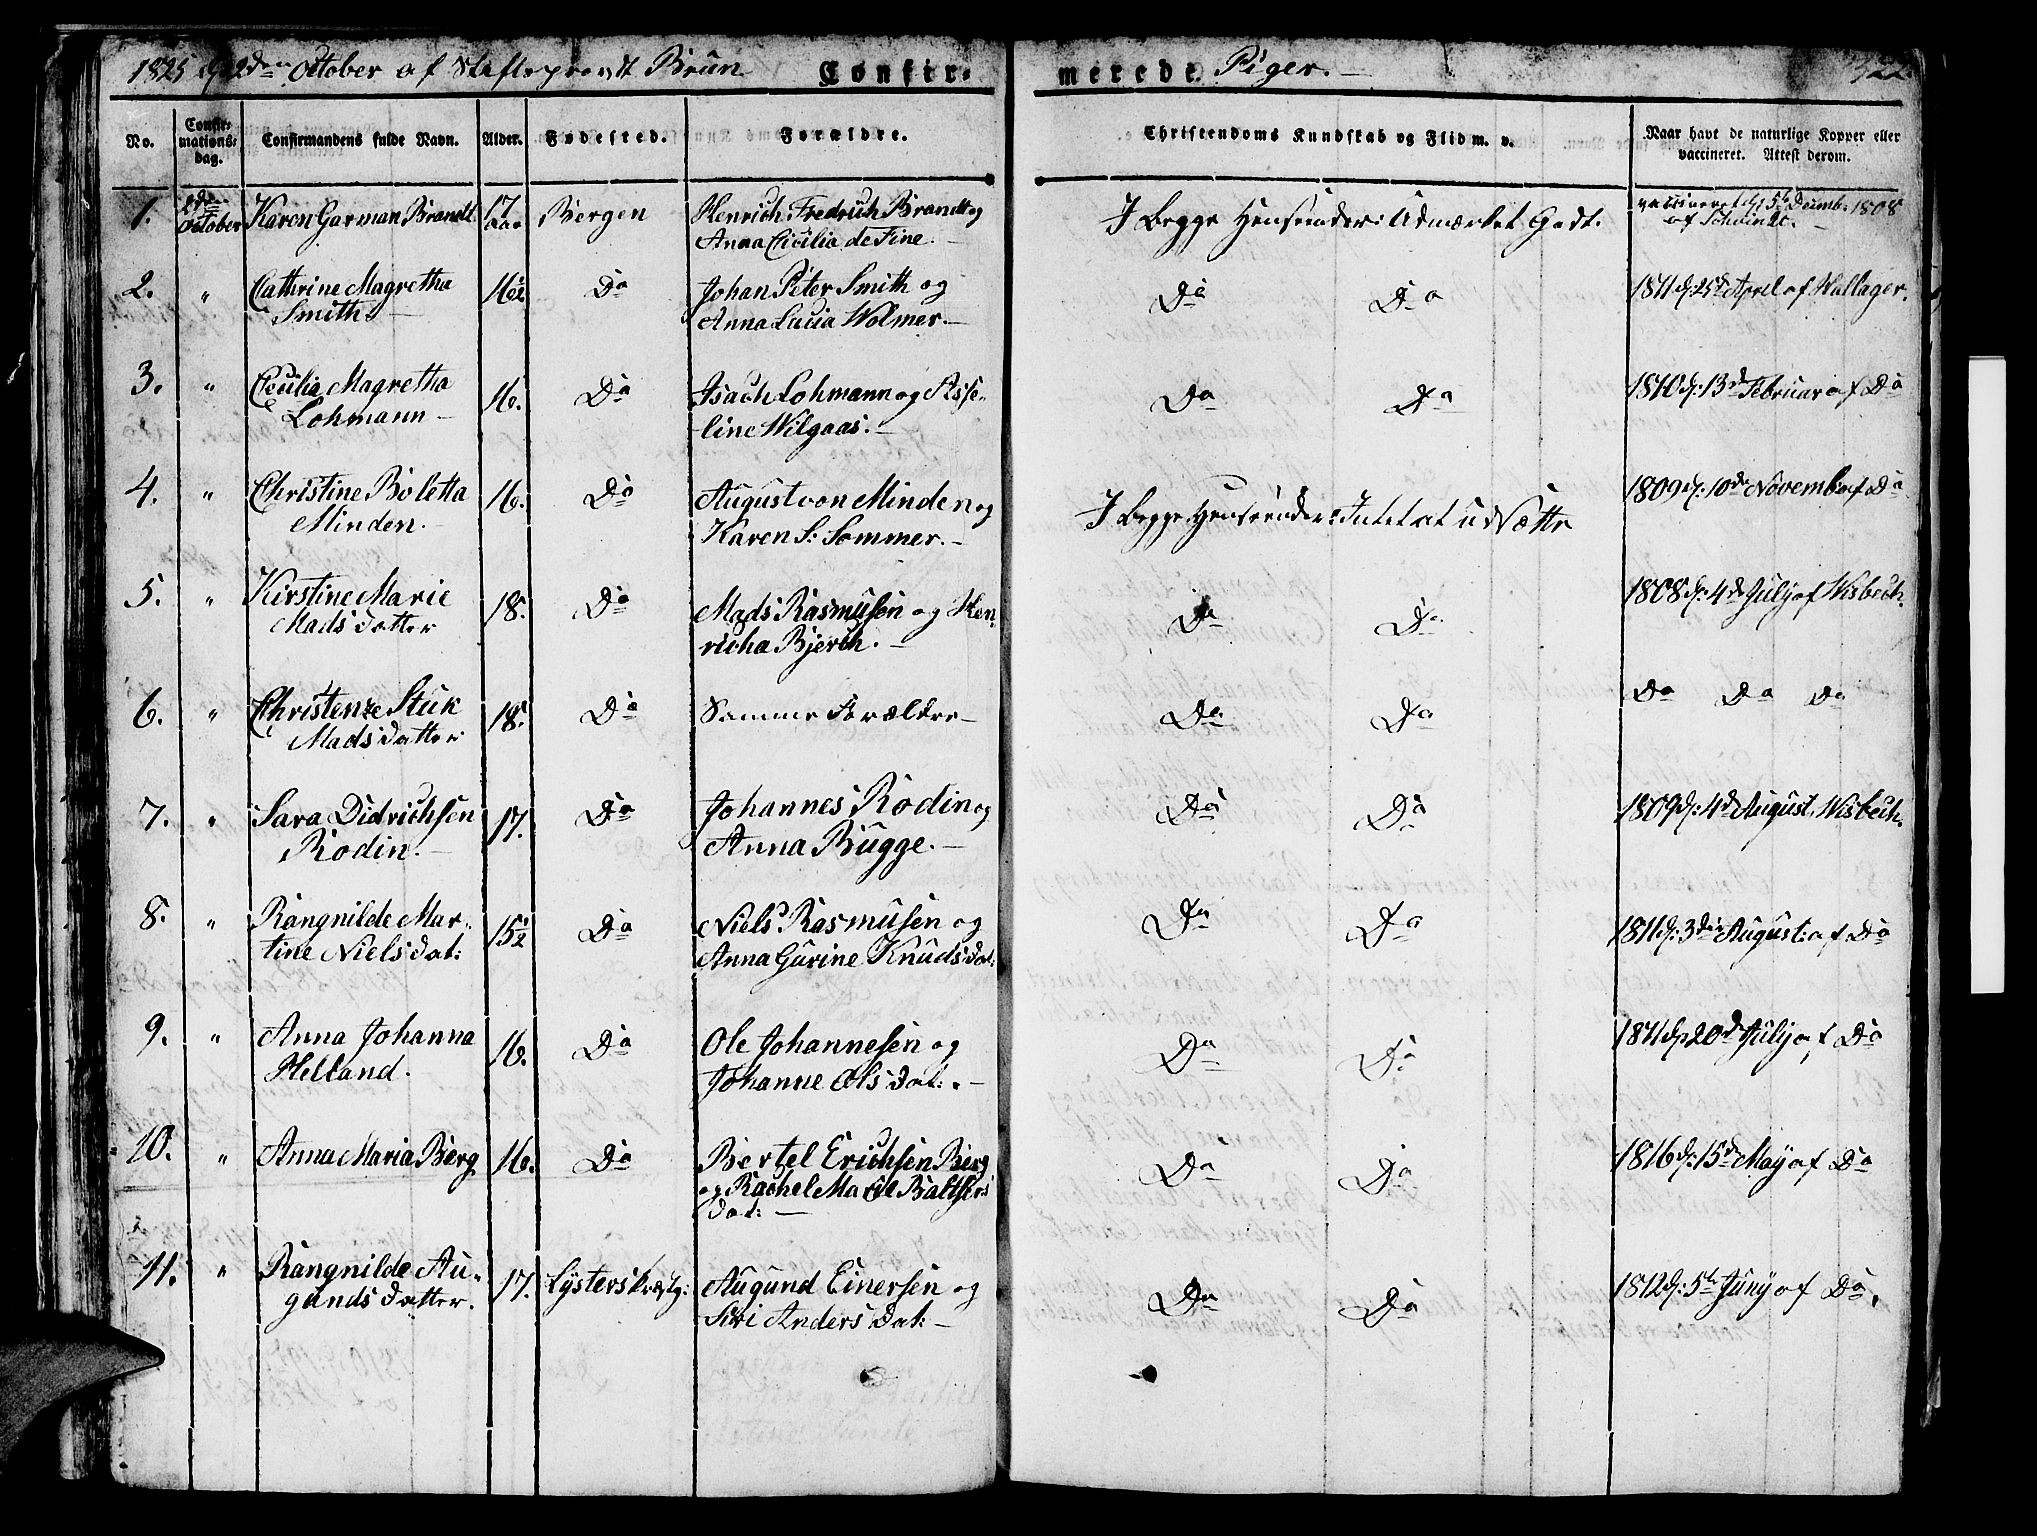 1825 d: 2den October af Stiftsprovst Brun Confir- merede Piger. 422.
No. Confir-mations-dag. Confirmandens fulde Navn. Alder. Fødested. Forældre. Christendoms Kundskab og Flid m. v. Naar havt de naturlige Kopper eller vaccineret. Attest derom.
1. 2den October Karen Garman Brandt 17 aar Bergen Henrich Fredrich Brandt og I Begge Hensender: Udmærket Godt. vaccineret d: 5te Decemb. 1808
Anna Cicilia de Fine. af Schwindt.
2. " Cathrine Magretha 16½ Do Johan Peter Smith og Do Do 1811 d: 25de Aprel af Wallager.
Smith Anna Lucia Wolmer.
3. " Cecilia Magretha 16. Do Isach Lohmann og Asse- Do Do 1810 d: 13de Februar af Do
Lohmann line Wilgaas.
4. " Christine Boletta 16. Do August von Minden og I Begge Hensender: Intet at udsætte 1809 d: 10de Novemb. af Do
Minden. Karen S: Sommer.
5. " Kirstine Marie 18. Do Mads Rasmusen og Hen- Do Do 1808 d: 4de July af Wisbech.
Mads datter richa Bjerch.
6. " Christenze Stuk 18. Do Samme Forældre Do Do Do Do Do
Mads datter
7. " Sara Didrichsen 17. Do Johannes Rodin og Do Do 1809 d: 4de August, Wisbech.
Rodin. Anna Bugge.
8. " Rangnilde Mar- 15½ Do Niels Rasmusen og Do Do 1811 d: 3die August: af Do
tine Niels dat: Anna Gurine Knuds dat:
9. " Anna Johanna 16. Do Ole Johannesen og Do Do 1811 d: 20de July af Do
Helland. Johanne Ols dat:
10. " Anna Maria Berg 16. Do Bertel Erichsen Berg Do Do 1816 d: 15de May af Do
og Rachel Marie Baltsers
dat:
11. " Rangnilde Au- 17. Lysters Præstg: Augund Einersen og Do Do 1812 d: 5te Juny af Do.
gunds datter. Siri Anders dat: